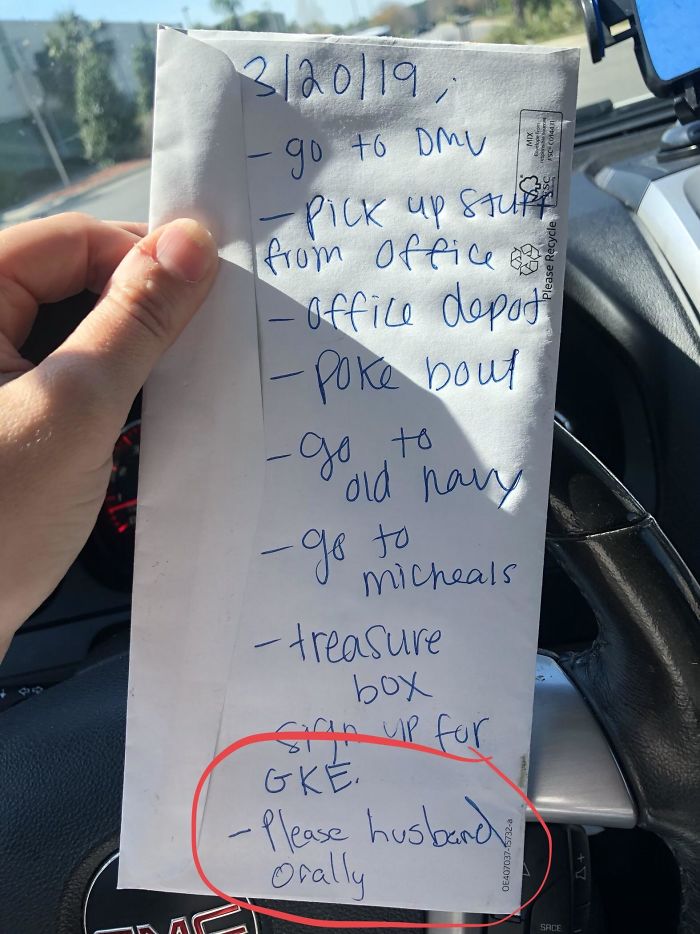 3/20/19,
- go to DMV
- pick up stuff
from office
- office depot
- poke bowl
- go to
old navy
- go to
micheals
- treasure
box
sign up for
GKE.
- Please husband
orally
MIX
FSC
Please Recycle
OE407037-15732-a
GMC
SRCE